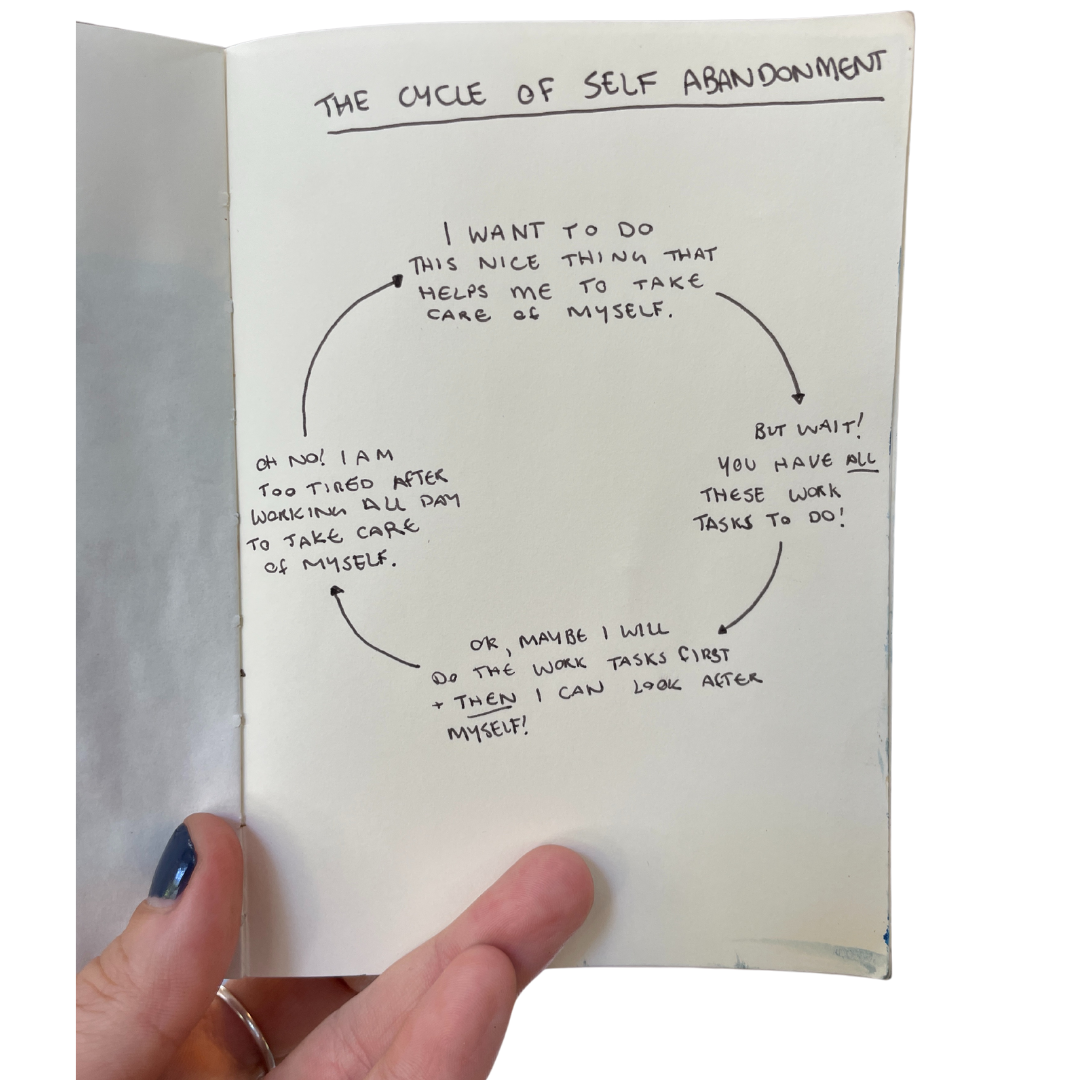 THE CYCLE OF SELF ABANDONMENT
I WANT TO DO
THIS NICE THING THAT
HELPS ME TO TAKE
CARE of MYSELF.
BUT WAIT!
YOU HAVE ALL
THESE WORK
TASKS TO DO!
OK, MAYBE I WILL
DO THE WORK TASKS FIRST
+ THEN I CAN LOOK AFTER
MYSELF!
OH NO! I AM
TOO TIRED AFTER
WORKING ALL DAY
TO TAKE CARE
of MYSELF.